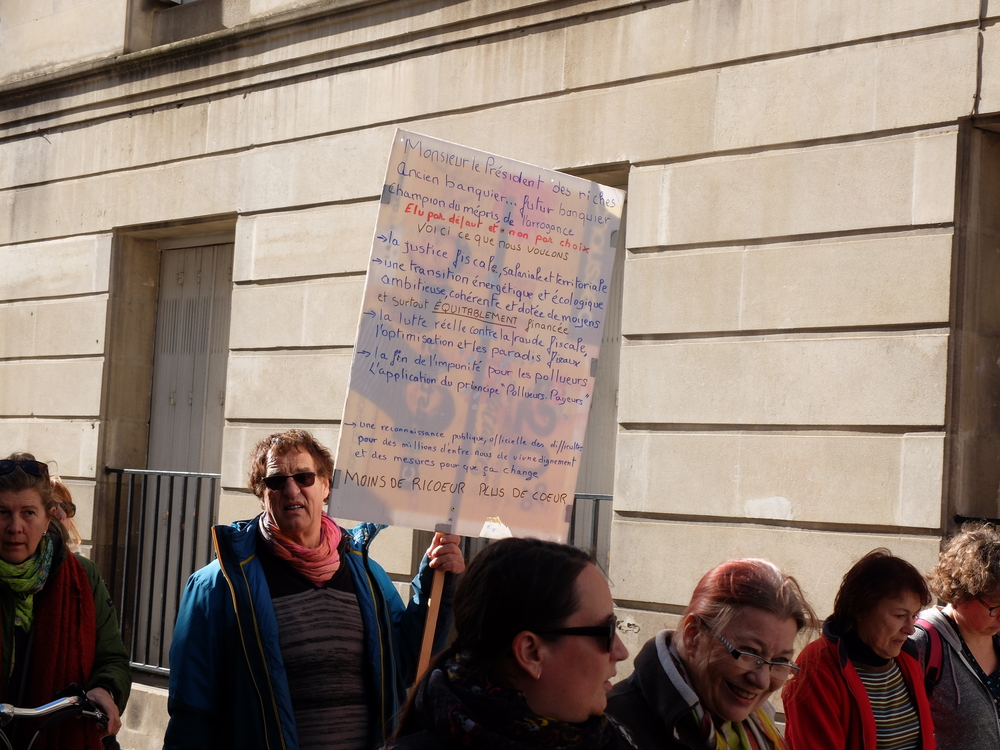 Monsieur le Président des riches
Ancien banquier... futur banquier
Champion du mépris, de l'arrogance
Elu par défaut et non par choix
VOICI ce que nous voulons
→ la justice fiscale, salariale et territoriale
→ une transition énergétique et écologique
ambitieuse, cohérente et dotée de moyens
et surtout ÉQUITABLEMENT financée
→ la lutte réelle contre la fraude fiscale,
l'optimisation et les paradis fiscaux
→ la fin de l'impunité pour les pollueurs
L'application du principe "Pollueurs. Payeurs"
→ une reconnaissance publique, officielle des difficultés
pour des millions d'entre nous de vivre dignement
et des mesures pour que ça change
MOINS DE RICOEUR PLUS DE COEUR